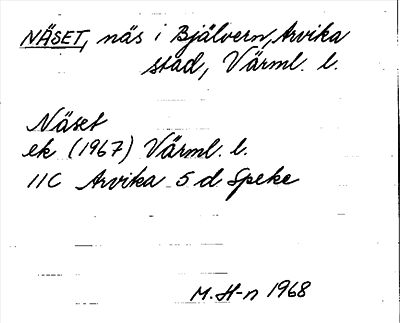 NÄSET, näs i Bjälvern, Arvika
stad, Värml. l.
Näset
ek (1967) Värml. l.
11C Arvika 5 d Speke
M. H-n 1968